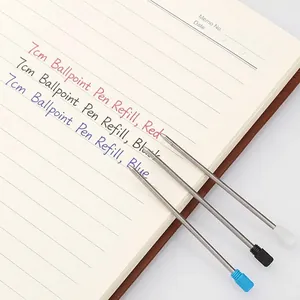 Memo No.
Date
7cm Ballpoint Pen Refill, Red
7cm Ballpoint Pen Refill, Black
7cm Ballpoint Pen Refill, Blue